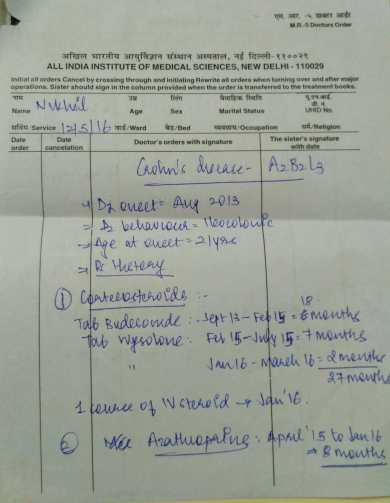 एम. आर. -५ डाक्टर आर्डर
M.R.-5 Doctors Order
अखिल भारतीय आयुर्विज्ञान संस्थान अस्पताल, नई दिल्ली-११००२९
ALL INDIA INSTITUTE OF MEDICAL SCIENCES, NEW DELHI - 110029
Initial all orders Cancel by crossing through and initiating Rewrite all orders when turning over and after major
operations. Sister should sign in the column provided when the order is transferred to the treatment books.
नाम उम्र लिंग वैवाहिक स्थिति यू.एच.आई.
डी. नं.
Name Nikhil Age Sex Marital Status UHID No.
सर्विस Service 12/5/16 वार्ड/Ward बेड/Bed व्यवसाय/Occupation धर्म/Religion
Date order Date cancelation Doctor's orders with signature The sister's signature with date
Crohn's disease - A2B2L3
Dz onset = Aug 2013
Dz behaviour = Ileocolonic
Age at onset = 21 yrs
Rx History
① Corticosteroids :-
18
Tab Budeconide : Sept 13 - Feb 15 = months
Tab Wysolone : Feb 15 - July 15 = 7 months
" Jan 16 - March 16 = 2 months
27 months
1 course of IV steroid → Jan'16.
② Azathioprine : April '15 to Jan 16
⇒ 8 months